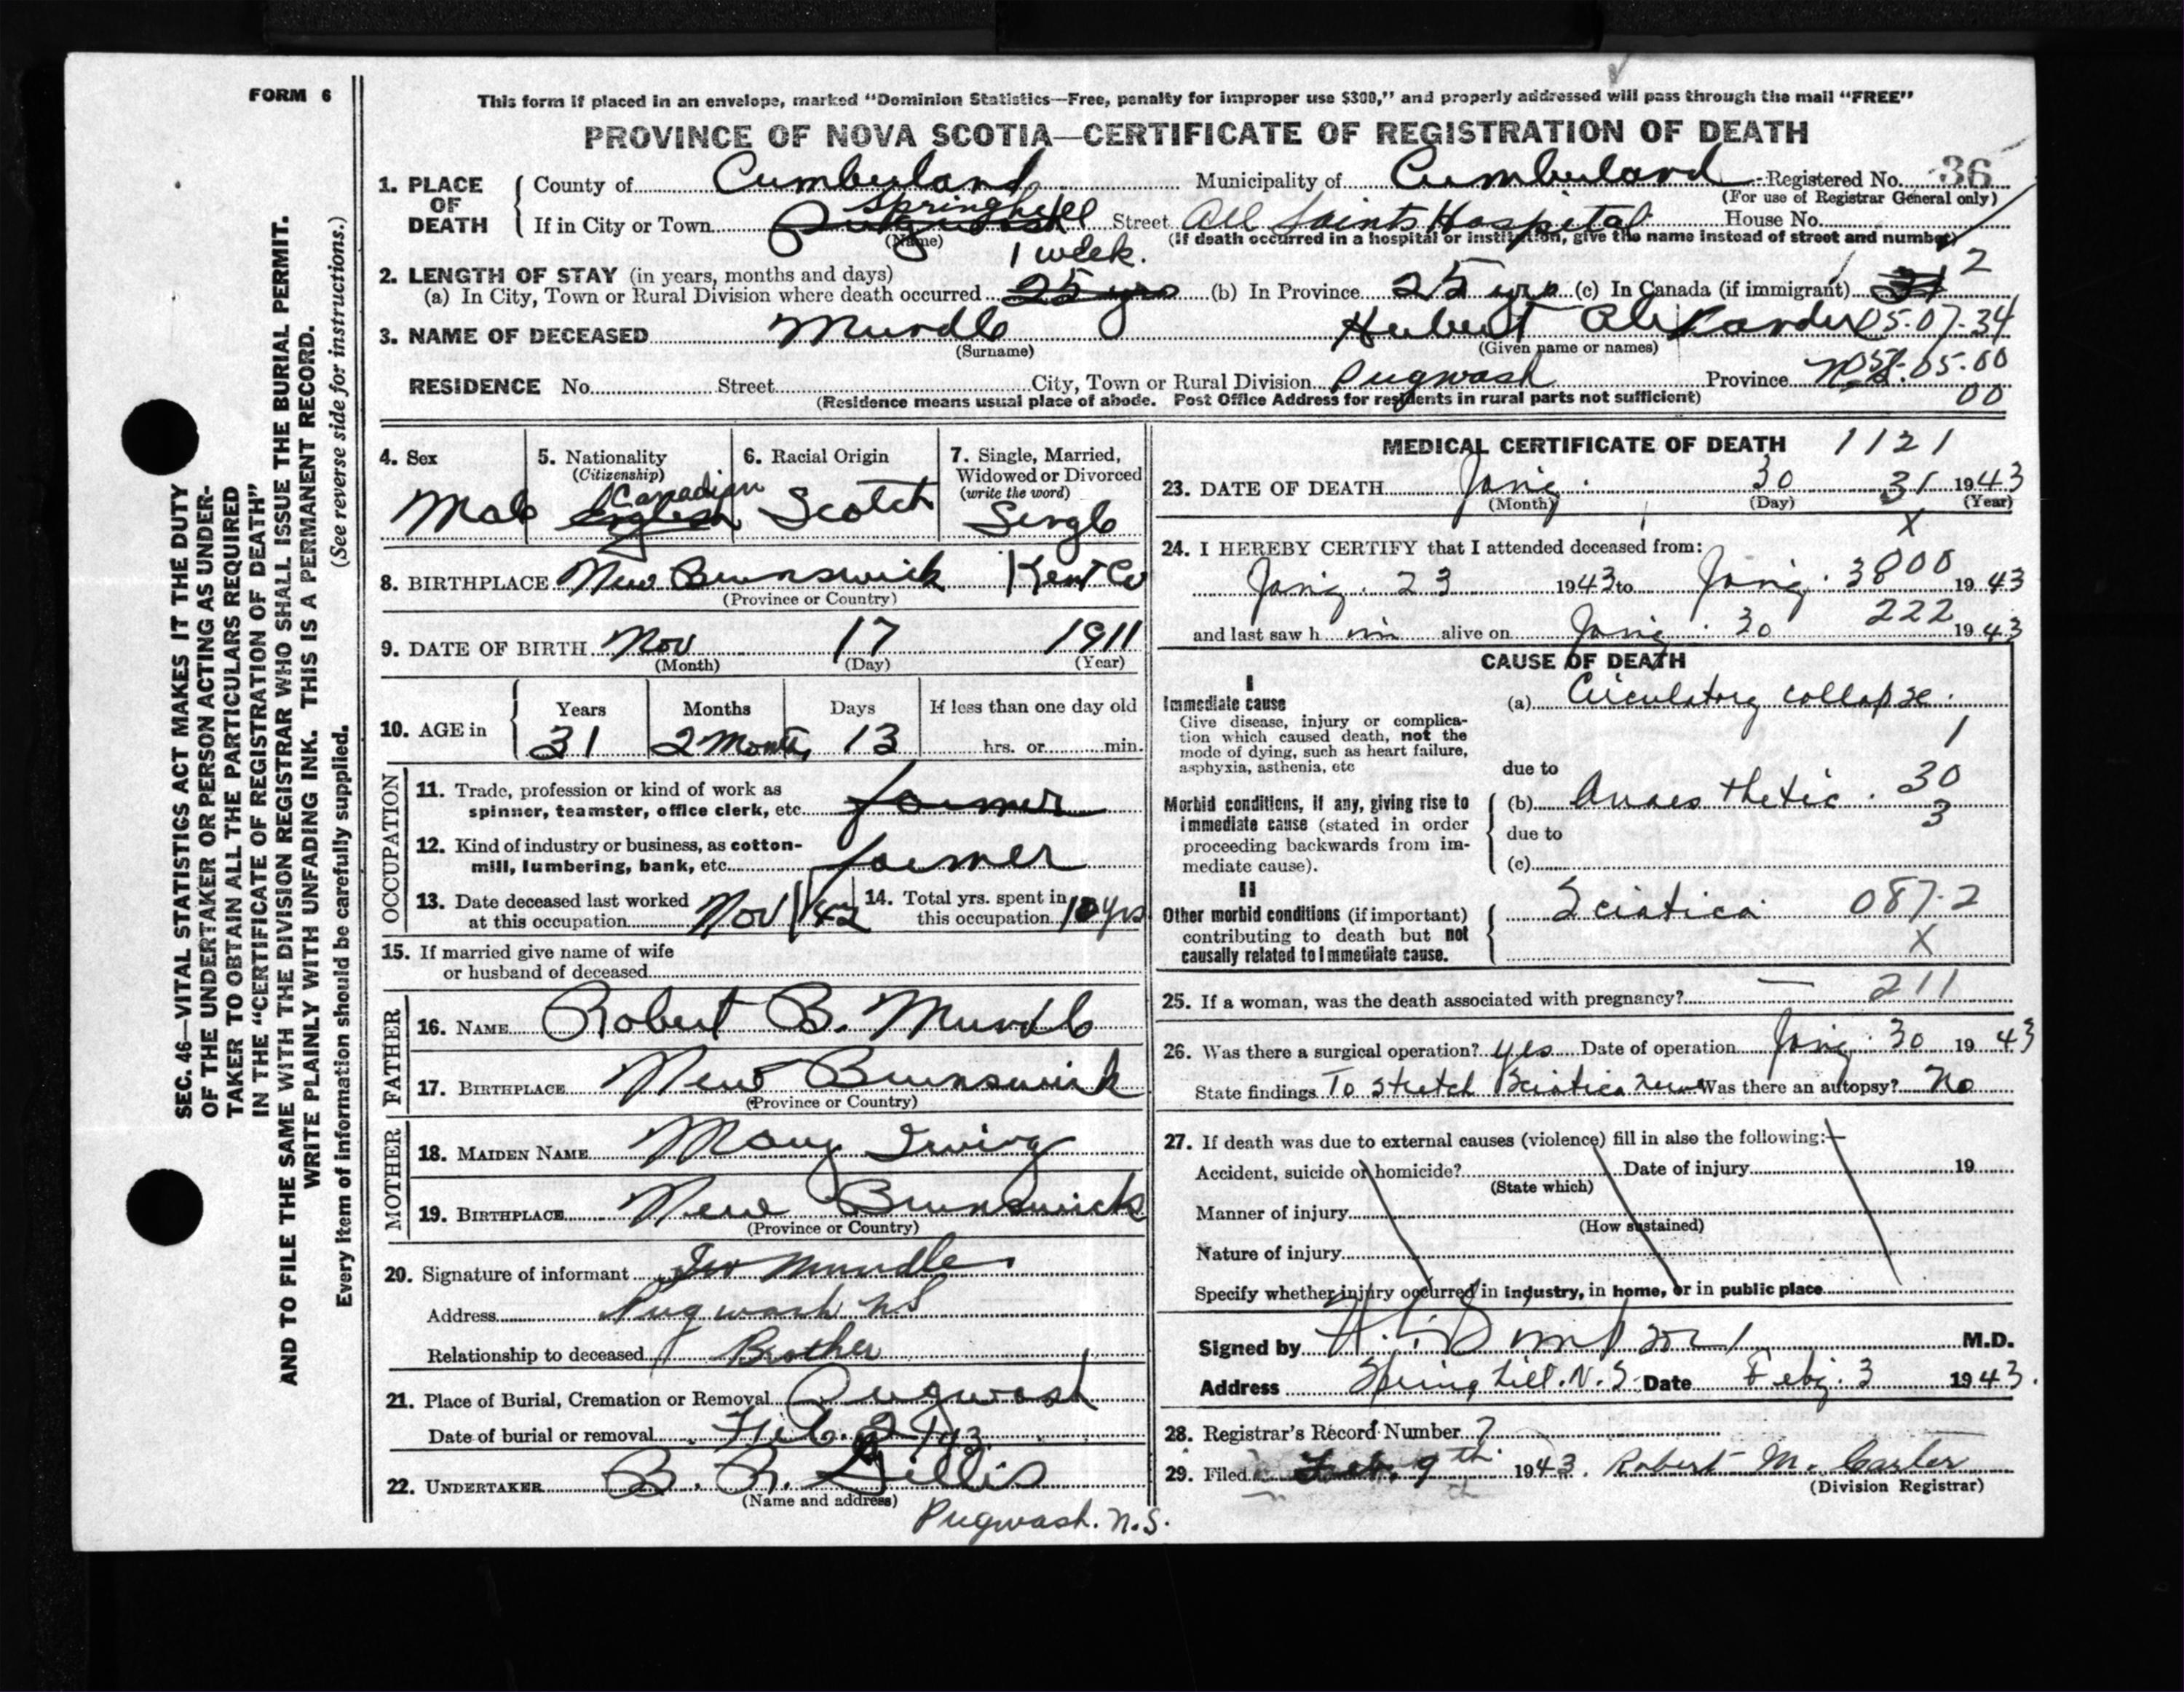 FORM 6
This form if placed in an envelope, marked "Dominion Statistics—Free, penalty for improper use $300," and properly addressed will pass through the mail "FREE"
PROVINCE OF NOVA SCOTIA—CERTIFICATE OF REGISTRATION OF DEATH
1. PLACE OF DEATH County of Cumberland Municipality of Cumberland Registered No. 36
(For use of Registrar General only)
If in City or Town Pugwash Springhill Street All Saints Hospital House No.
(Name) (If death occurred in a hospital or institution, give the name instead of street and number)
1 week.
2. LENGTH OF STAY (in years, months and days)
(a) In City, Town or Rural Division where death occurred 25 yrs (b) In Province 25 yrs (c) In Canada (if immigrant) 31 2
3. NAME OF DECEASED Mundle Hubert Alexander 05-07-34
(Surname) (Given name or names)
RESIDENCE No. Street City, Town or Rural Division Pugwash Province N.S. 05-00
(Residence means usual place of abode. Post Office Address for residents in rural parts not sufficient) 00
4. Sex 5. Nationality (Citizenship) 6. Racial Origin 7. Single, Married, Widowed or Divorced (write the word)
Male English Canadian Scotch Single
8. BIRTHPLACE New Brunswick Kent Co
(Province or Country)
9. DATE OF BIRTH Nov 17 1911
(Month) (Day) (Year)
10. AGE in Years Months Days If less than one day old
31 2 Months 13 hrs. or min.
OCCUPATION
11. Trade, profession or kind of work as spinner, teamster, office clerk, etc. farmer
12. Kind of industry or business, as cotton-mill, lumbering, bank, etc. farmer
13. Date deceased last worked at this occupation Nov/42 14. Total yrs. spent in this occupation 10 yrs
15. If married give name of wife or husband of deceased
FATHER
16. NAME Robert B. Mundle
17. BIRTHPLACE New Brunswick
(Province or Country)
MOTHER
18. MAIDEN NAME Mary Irving
19. BIRTHPLACE New Brunswick
(Province or Country)
20. Signature of informant Mundle
Address Pugwash N S
Relationship to deceased Brother
21. Place of Burial, Cremation or Removal Pugwash
Date of burial or removal Feb. 2 1943
22. UNDERTAKER B. R. Gillis
(Name and address)
Pugwash. N.S.
MEDICAL CERTIFICATE OF DEATH 1121
23. DATE OF DEATH Jany. 30 31 1943
(Month) (Day) (Year)
X
24. I HEREBY CERTIFY that I attended deceased from:
Jany. 23 1943 to Jany. 30 00 1943
222
and last saw h im alive on Jany. 30 1943
CAUSE OF DEATH
I
Immediate cause
Give disease, injury or complication which caused death, not the mode of dying, such as heart failure, asphyxia, asthenia, etc
(a) Circulatory collapse.
1
due to
Morbid conditions, if any, giving rise to immediate cause (stated in order proceeding backwards from immediate cause).
(b) Anaesthetic. 30
3
due to
(c)
II
Other morbid conditions (if important) contributing to death but not causally related to immediate cause.
Sciatica 087-2
X
25. If a woman, was the death associated with pregnancy? — 211
26. Was there a surgical operation? yes Date of operation Jany. 30 1943
State findings To stretch Sciatica nerve Was there an autopsy? No
27. If death was due to external causes (violence) fill in also the following:—
Accident, suicide or homicide? Date of injury 19
(State which)
Manner of injury
(How sustained)
Nature of injury
Specify whether injury occurred in industry, in home, or in public place
Signed by M.D.
Address Springhill. N.S. Date Feby. 3 1943.
28. Registrar's Record Number 7
29. Filed Feb. 9th 1943. Robert M. Carter
(Division Registrar)
SEC. 46—VITAL STATISTICS ACT MAKES IT THE DUTY
OF THE UNDERTAKER OR PERSON ACTING AS UNDER-
TAKER TO OBTAIN ALL THE PARTICULARS REQUIRED
IN THE "CERTIFICATE OF REGISTRATION OF DEATH"
AND TO FILE THE SAME WITH THE DIVISION REGISTRAR WHO SHALL ISSUE THE BURIAL PERMIT.
WRITE PLAINLY WITH UNFADING INK. THIS IS A PERMANENT RECORD.
Every item of information should be carefully supplied. (See reverse side for instructions.)